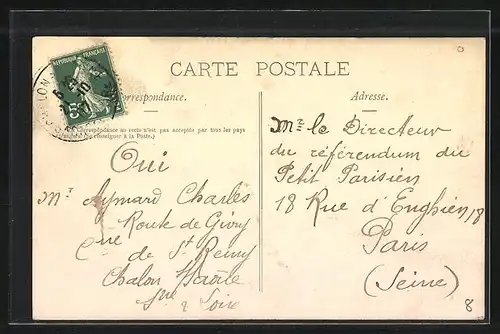 RÉPUBLIQUE FRANÇAISE
CARTE POSTALE
Correspondance.
Adresse.
correspondance au recto n'est pas acceptée par tous les pays
se renseigner à la Poste.)
Oui
Mr Aymard Charles
Route de Givry
Cne de St Remy
Chalon Saône
Sne & Loire
Mr le Directeur
du référendum du
Petit Parisien
18 Rue d'Enghien 18
Paris
(Seine)
8